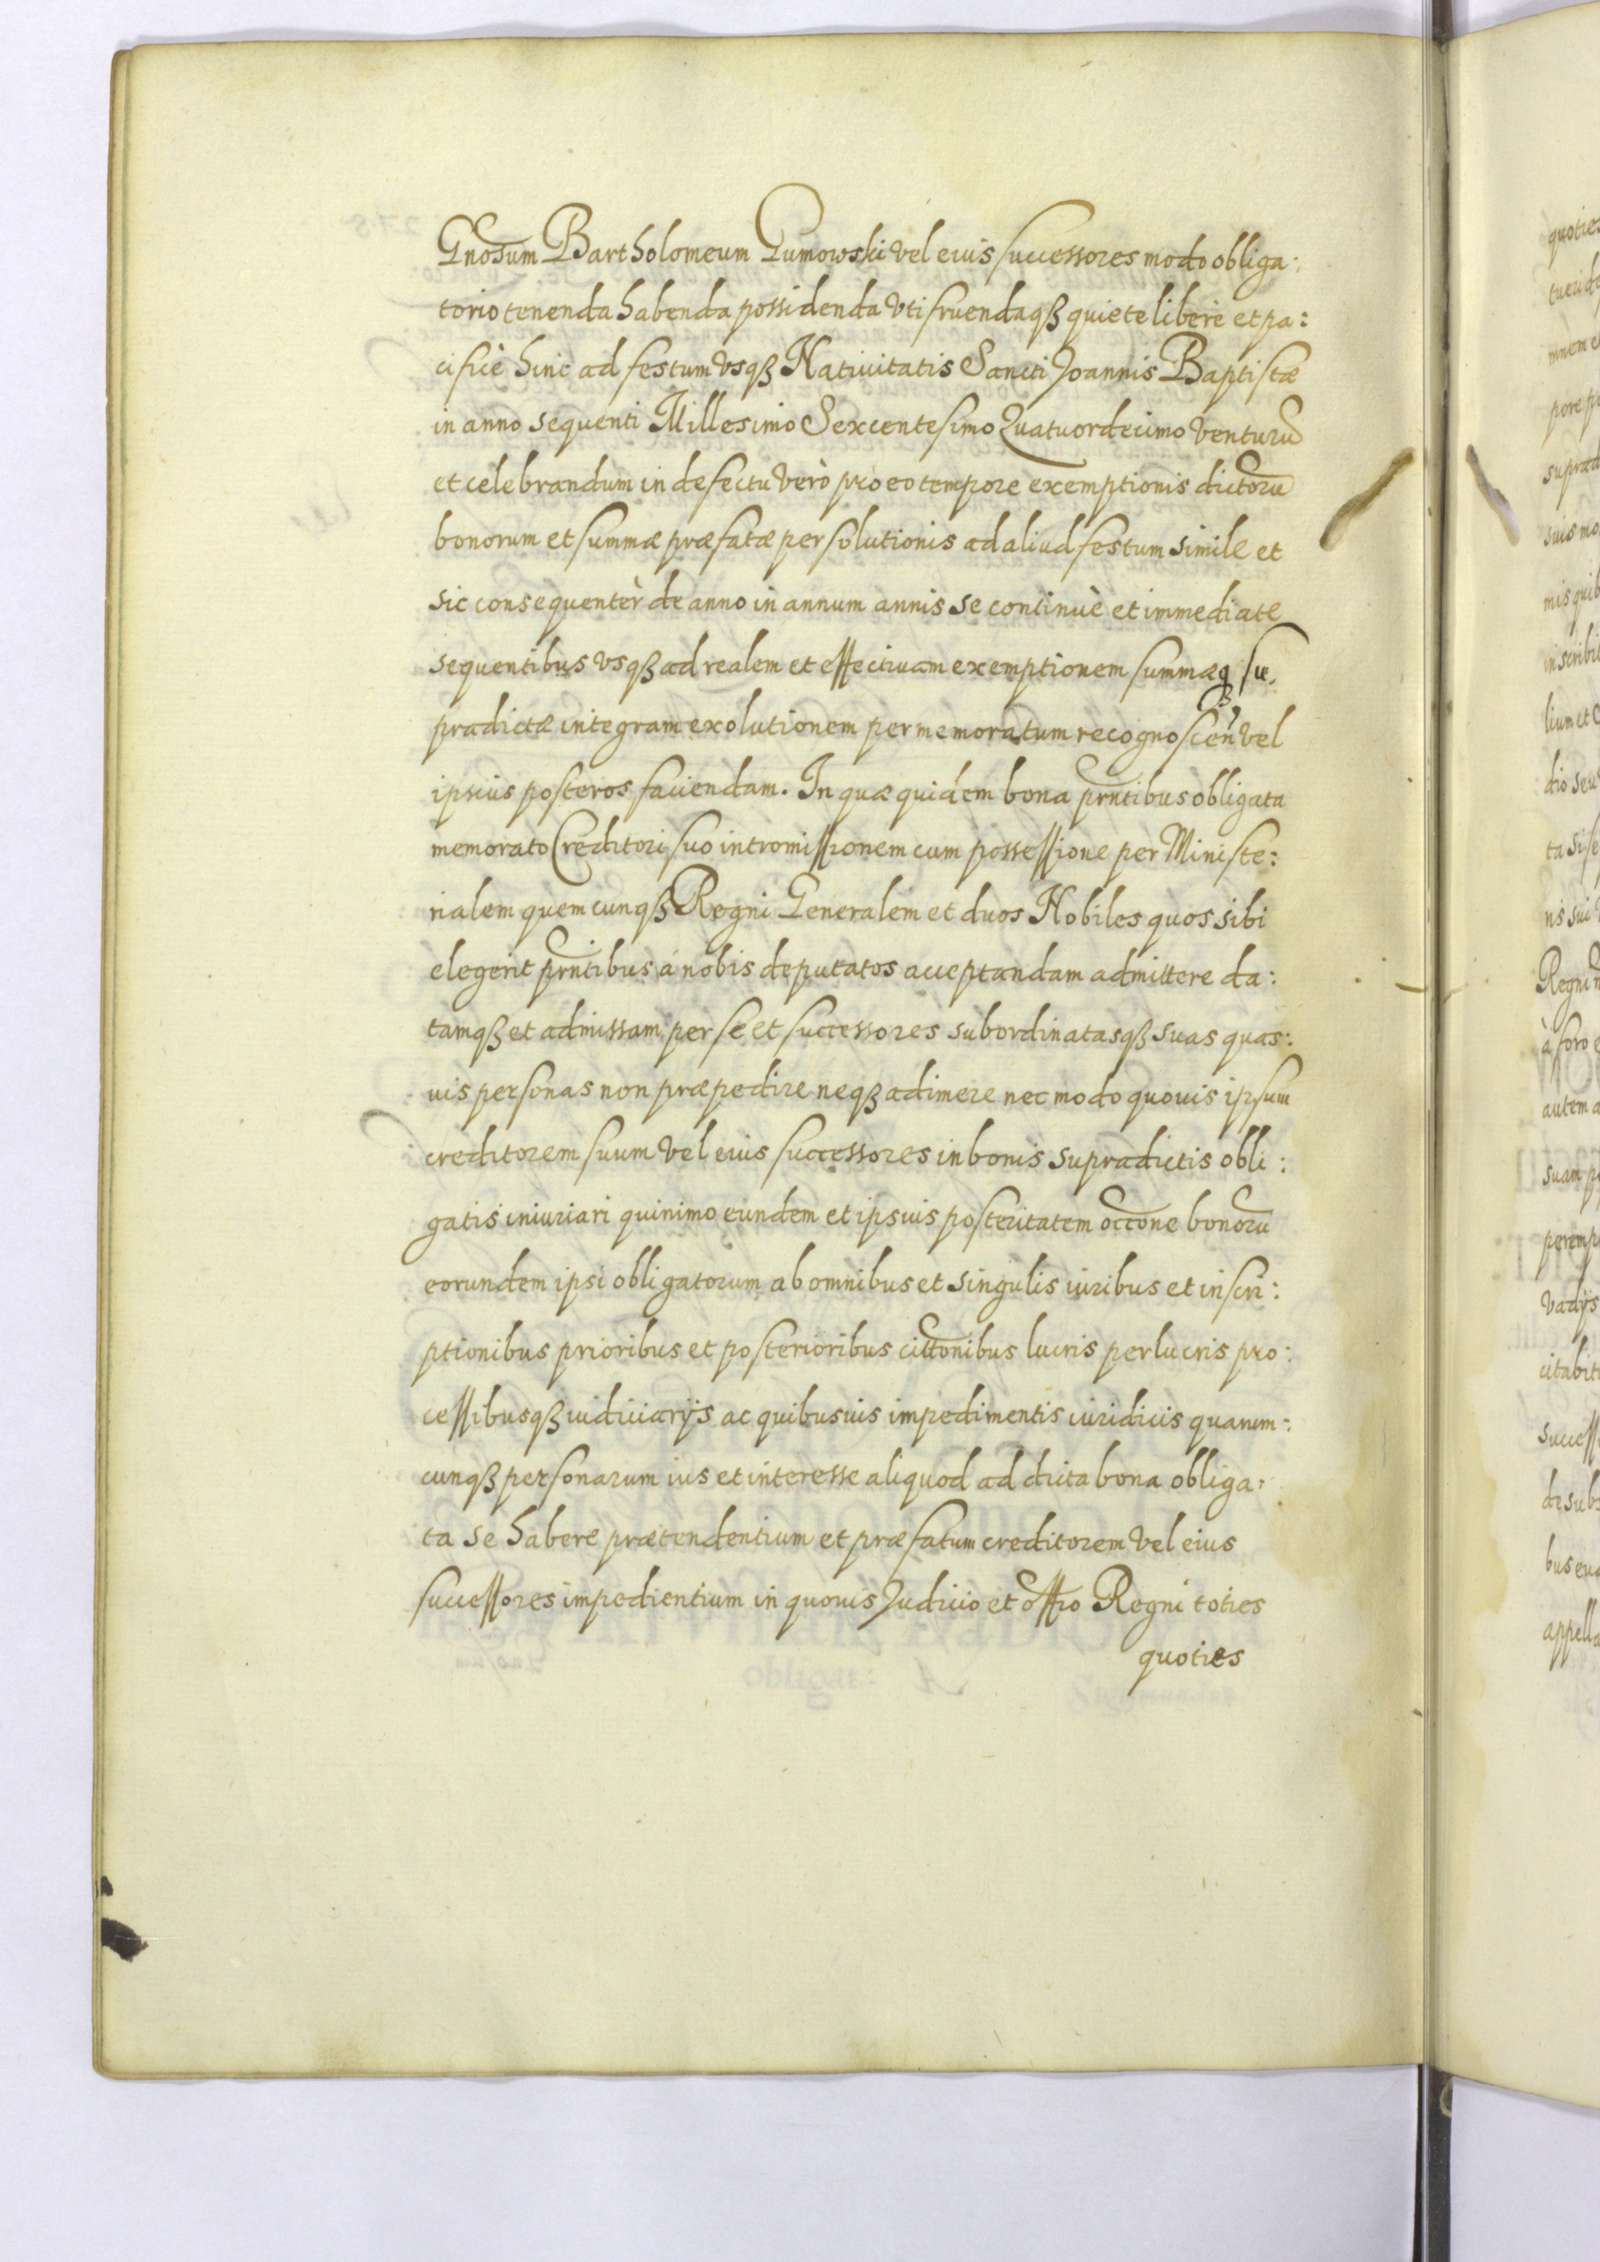 Gnosum Bartholomeum Gumowski vel eius successores modo obliga:
torio tenenda habenda possidenda vti fruendaqȝ quiete liberè et pa:
cificè hinc ad festum vsqȝ Natiuitatis Sancti Joannis Baptistæ
in anno sequenti Millesimo Sexcentesimo Quatuordecimo venturū
et celebrandum in defectu verò pro eo tempore exemptionis dictorū
bonorum et summæ præfatæ persolutionis ad aliud festum simile et
sic consequentèr de anno in annum annis se continuè et immediate
sequentibus vsqȝ ad realem et effectiuam exemptionem summæqȝ su.
pradictæ integram exolutionem per memoratum recognoscen̄ vel
ipsius posteros faciendam. In quæ quidem bona prntibus obligata
memorato Creditori suo intromissionem cum possessione per Ministe:
rialem quemcunqȝ Regni Generalem et duos Nobiles quos sibi
elegerit prntibus á nobis deputatos acceptandam admittere da:
tamqȝ et admissam per se et successores subordinatasqȝ suas quas:
uis personas non præpedire neqȝ adimere nec modo quouis ipsum
creditorem suum vel eius successores in bonis supradictis obli:
gatis iniuriari quinimo eundem et ipsius posteritatem occone bonorū
eorundem ipsi obligatorum ab omnibus et singulis iuribus et inscri:
ptionibus prioribus et posterioribus cittonibus lucris perlucris pro:
cessibusqȝ iudiciarijs ac quibusuis impedimentis iuridicis quarum:
cunqȝ personarum ius et interesse aliquod ad dicta bona obliga:
ta se habere prætendentium et præfatum creditorem vel eius
successores impedientium in quouis Judicio et offio Regni toties
quoties